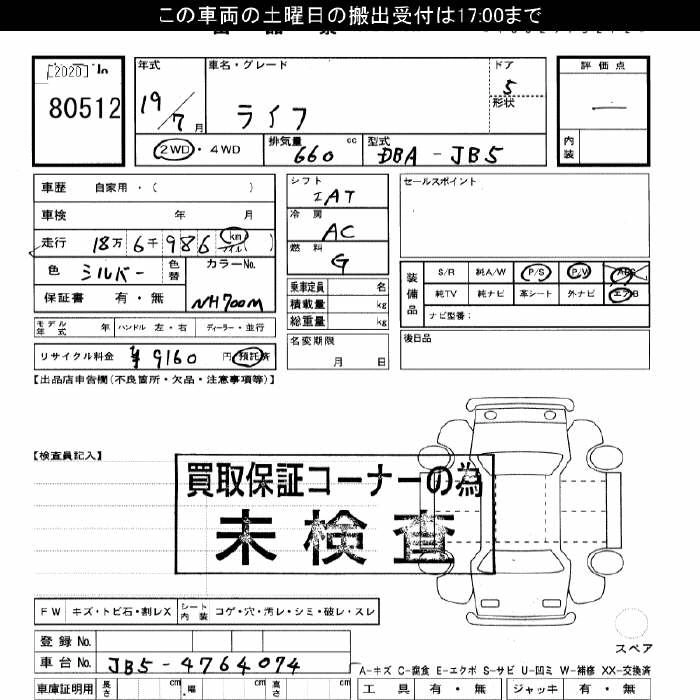 この車両の土曜日の搬出受付は17:00まで
[2020]
80512
年式 車名・グレード ドア 評価点
19/7月 ライフ 5 形状 —
内装
2WD・4WD 排気量 660 cc 型式 DBA-JB5
車歴 自家用・( )
車検 年 月
走行 18万6千986 km マイル
色 シルバー 色替 カラーNo.
保証書 有・無 NH700M
モデル年式 年 ハンドル 左・右 ディーラー・並行
リサイクル料金 ¥9160 円 預託済
シフト IAT
冷房 AC
燃料 G
乗車定員 名
積載量 kg
総重量 kg
名変期限
月 日
セールスポイント
装備品 S/R 純A/W P/S P/W ABS
純TV 純ナビ 革シート 外ナビ エアB
ナビ型番:
後日品
【出品店申告欄(不良箇所・欠品・注意事項等)】
【検査員記入】
買取保証コーナーの為
未検査
FW キズ・トビ石・割レX シート内装 コゲ・穴・汚レ・シミ・破レ・スレ
スペア
登録No.
車台No. JB5-4764074
A-キズ C-腐食 E-エクボ S-サビ U-凹ミ W-補修 XX-交換済
車庫証明用 長さ cm ・幅 cm 高さ cm 工具 有・無 ジャッキ 有・無